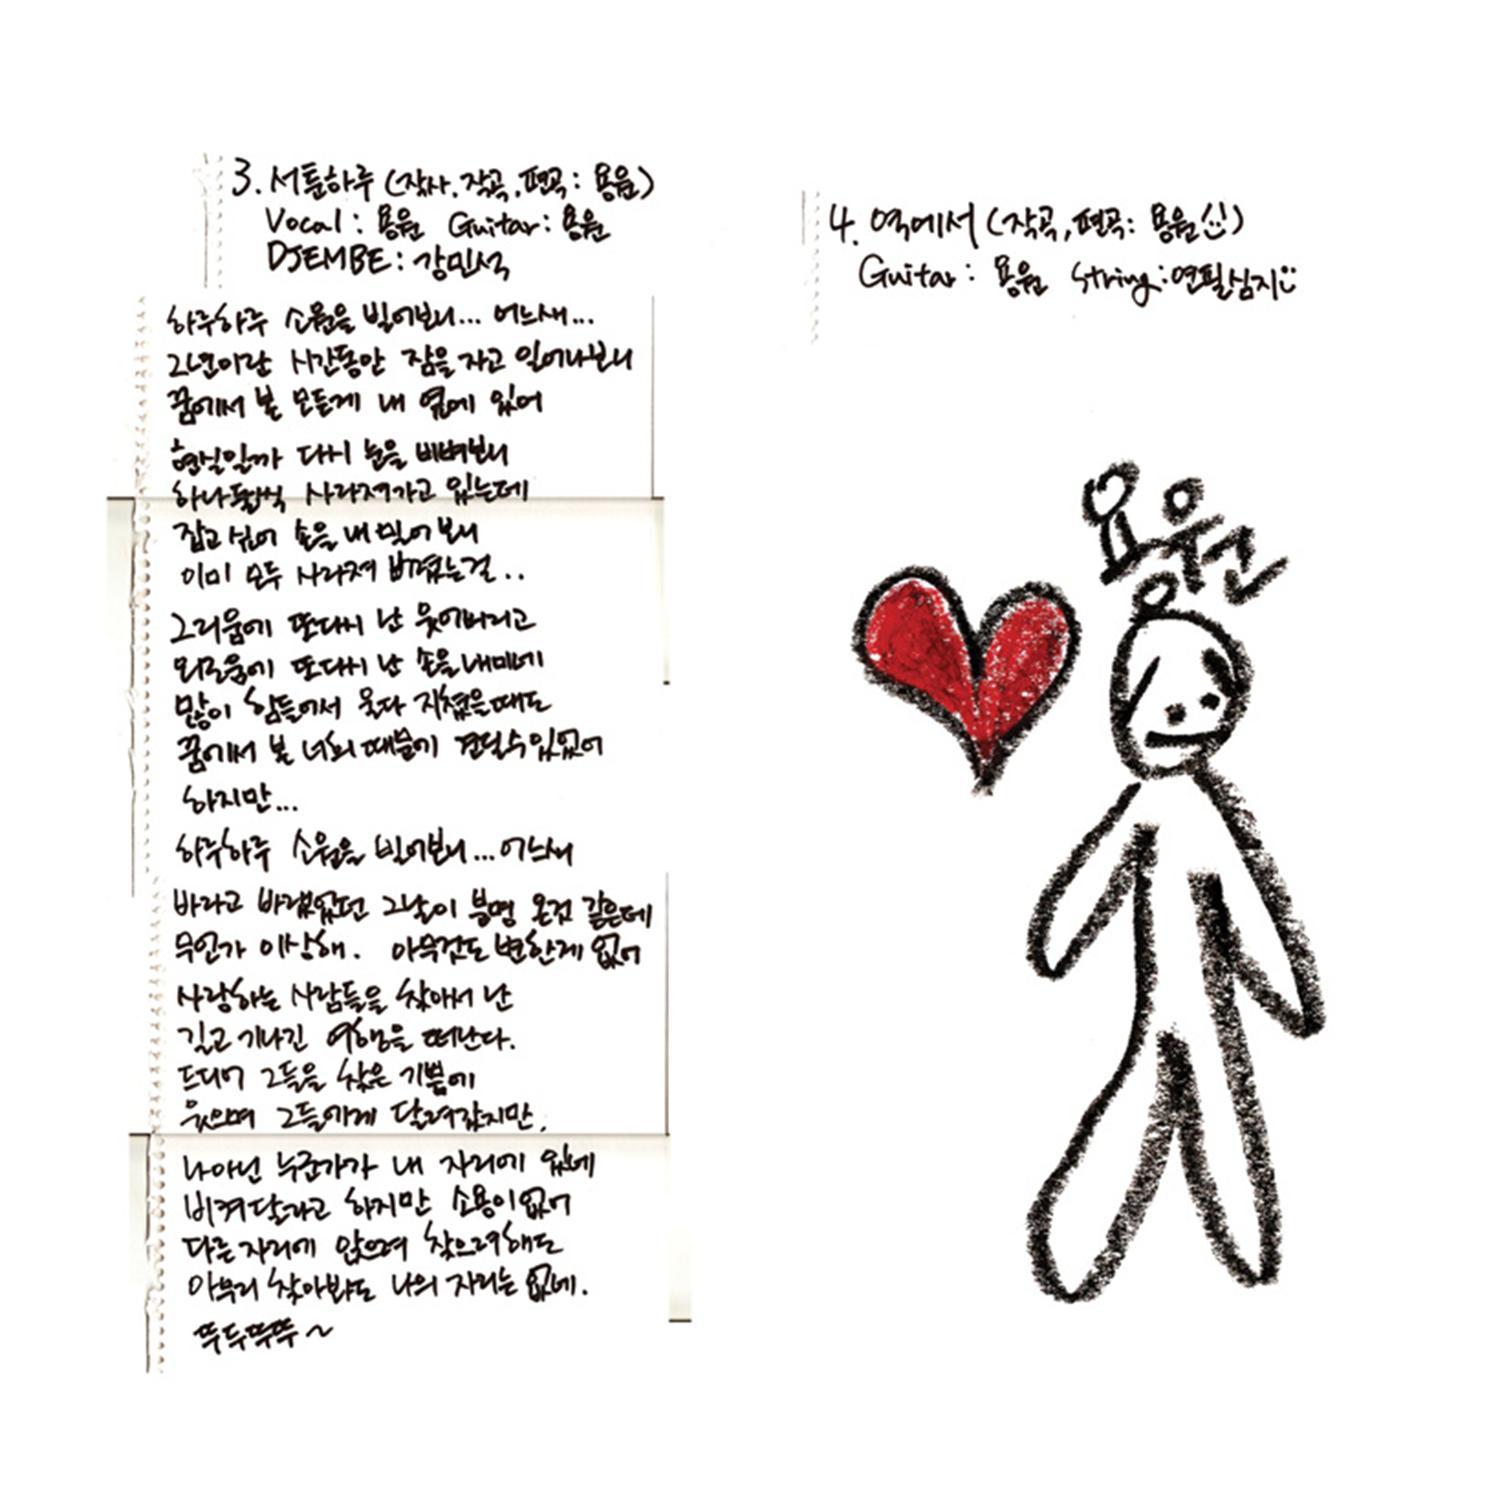 3. 서툰하루 (작사.작곡.편곡: 용윤)
Vocal : 용윤 Guitar: 용윤
DJEMBE: 강민석
하루하루 소원을 빌어보니... 어느새...
2년이란 시간동안 잠을 자고 일어나보니
꿈에서 본 모든게 내 옆에 있어
현실일까 다시 눈을 비벼보니
하나둘씩 사라져가고 있는데
잡고 싶어 손을 내밀어 보니
이미 모두 사라져 버렸는걸..
그리움에 또다시 난 웃어버리고
외로움에 또다시 난 손을 내미네
많이 힘들어서 울다 지쳤을때도
꿈에서 본 너희 때문에 견딜수있었어
하지만...
하루하루 소원을 빌어보니...어느새
바라고 바랬었던 그날이 분명 온것 같은데
무언가 이상해. 아무것도 변한게 없어
사랑하는 사람들을 찾아서 난
길고 기나긴 여행을 떠난다.
드디어 그들을 찾은 기쁨에
웃으며 그들에게 달려갔지만.
나아닌 누군가가 내 자리에 있네
비켜달라고 하지만 소용이없어
다른자리에 앉으며 찾으려해도
아무리 찾아봐도 나의 자리는 없네.
뚜두뚜뚜~
4. 역에서 (작곡,편곡: 용윤)
Guitar : 용윤 String:연필심지
용윤